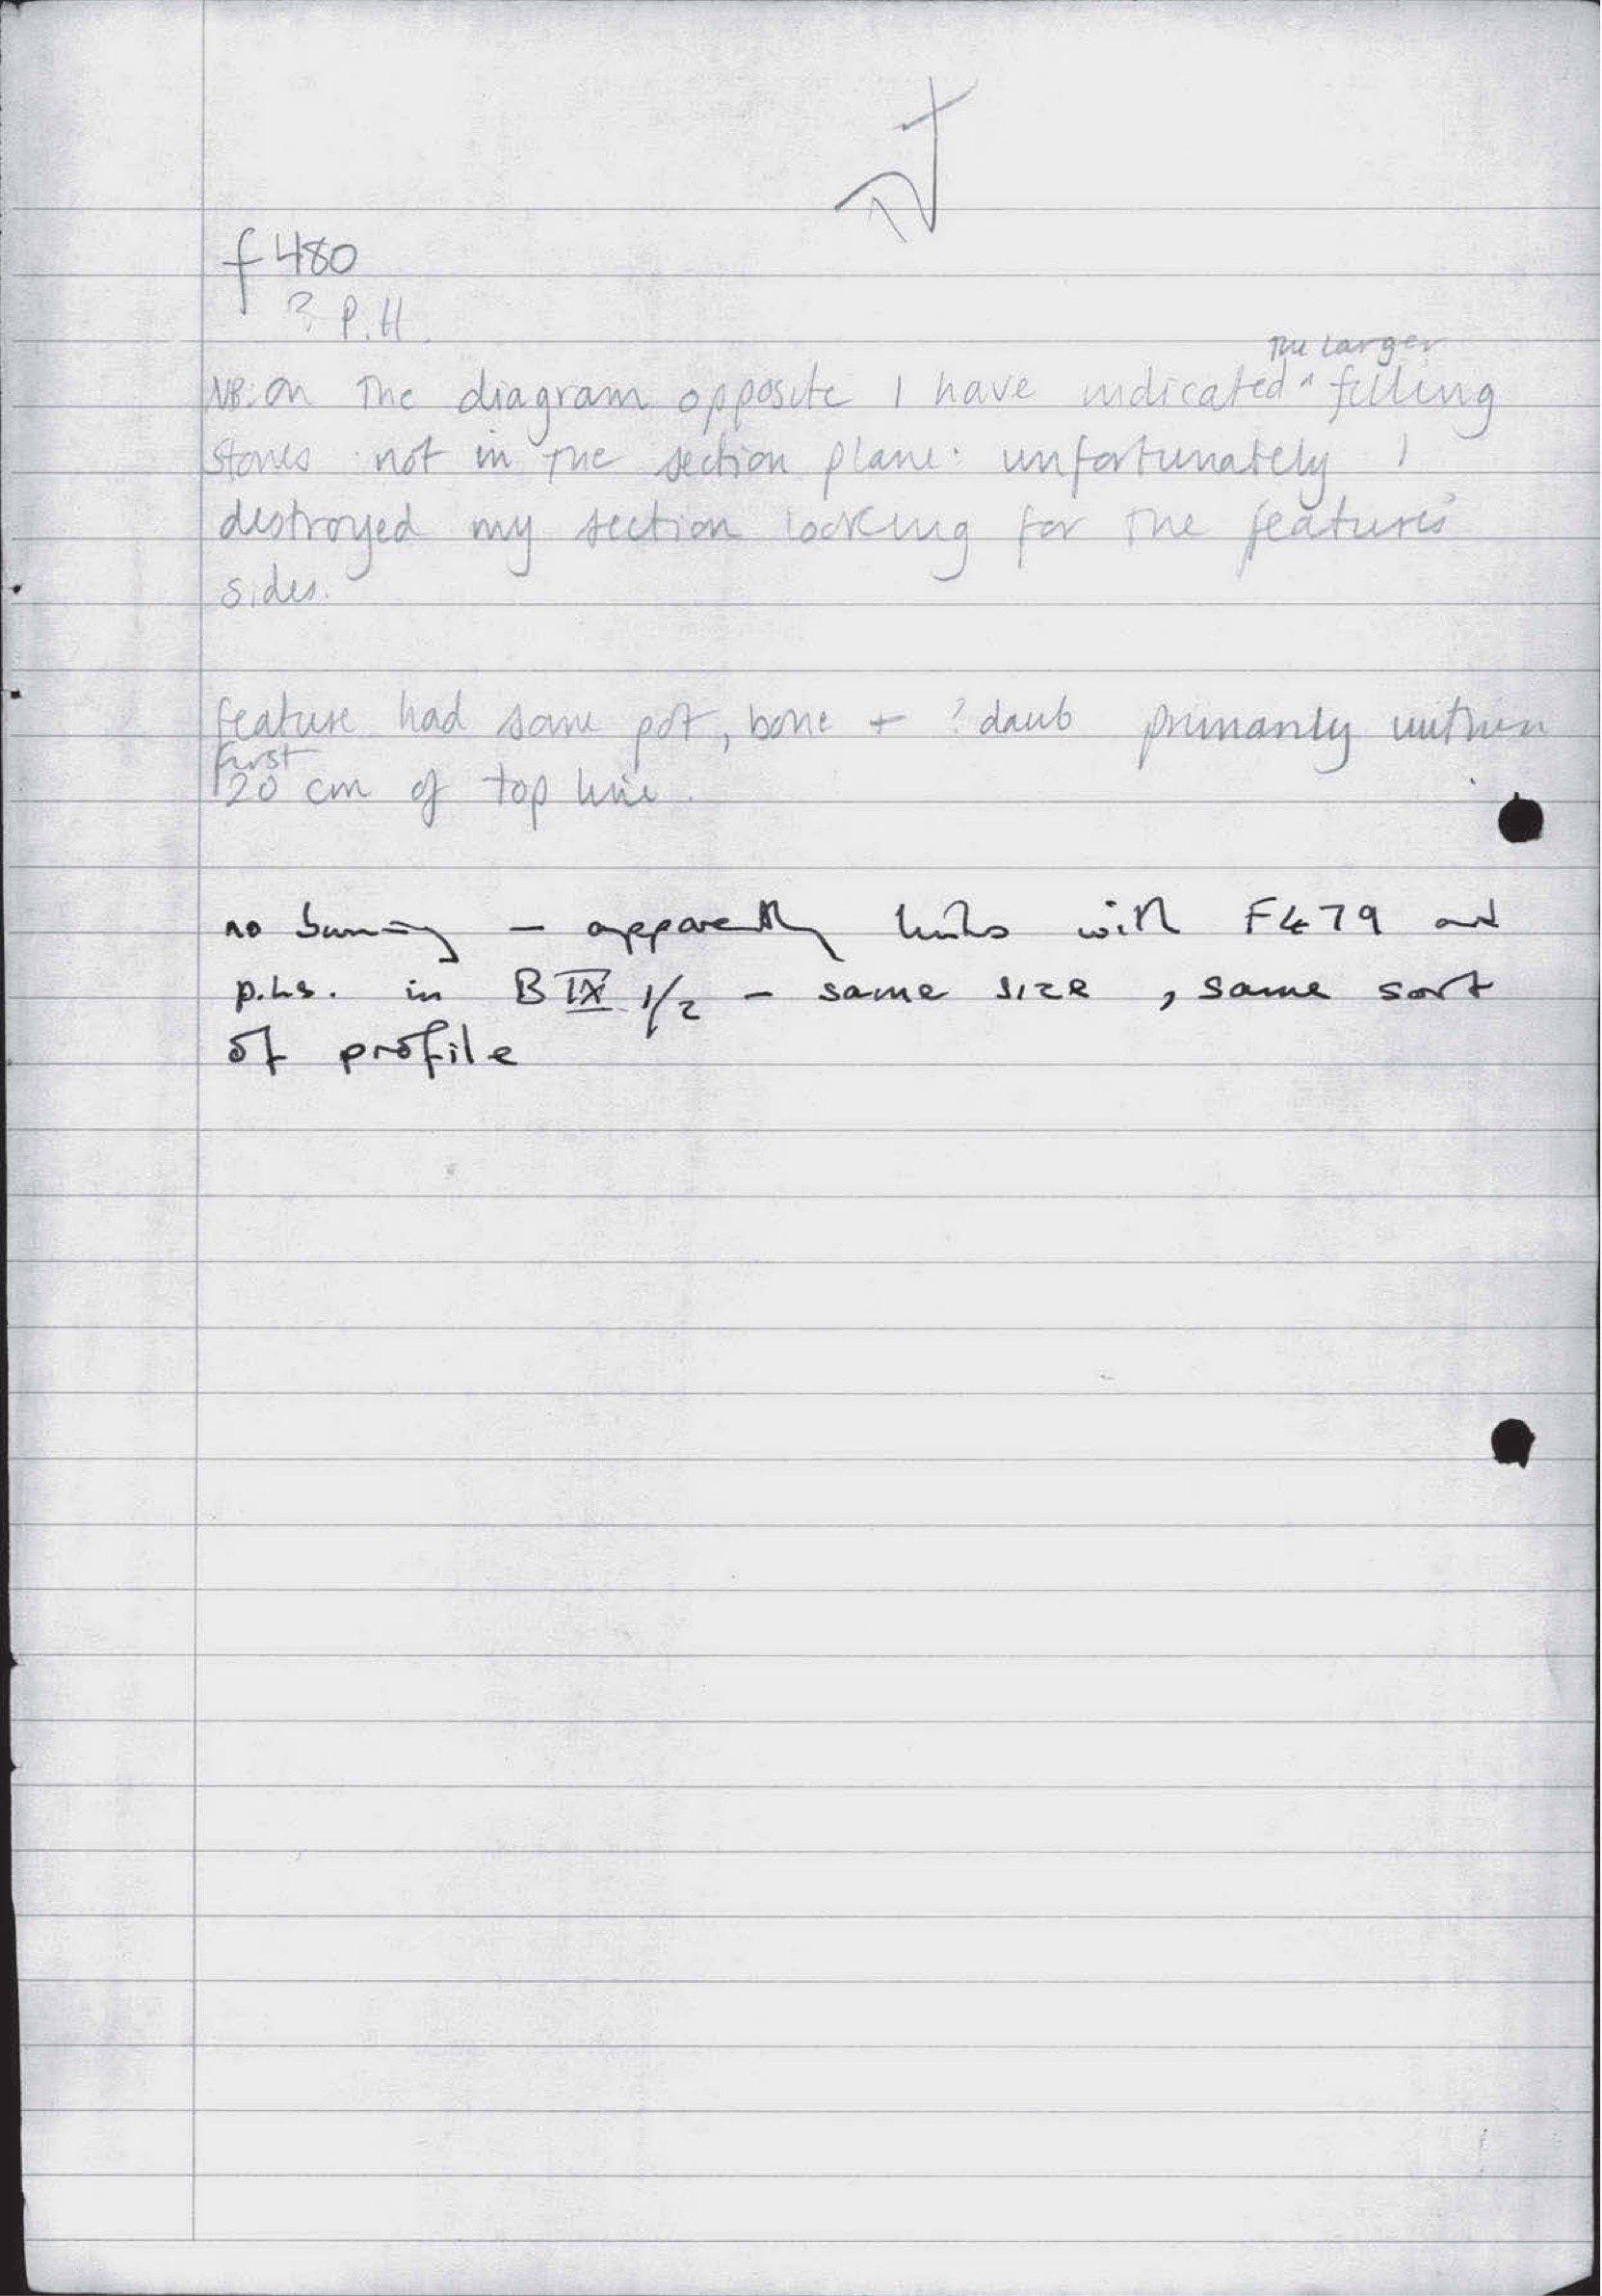 f480
? P.H.
the larger
NB: on the diagram opposite I have indicated ^ filling
stones not in the section plane: unfortunately I
destroyed my section looking for the features'
sides.
feature had some pot, bone + ? daub primarily within
first
20 cm of top line.
no burning – apparently links with F479 and
p.hs. in B IX 1/2 – same size, same sort
of profile